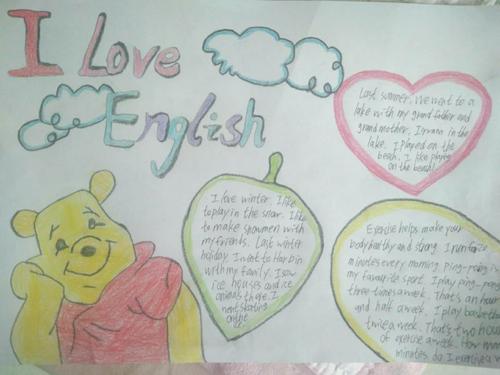 I Love
English
Last summer, We went to a
lake with my grand father and
grand mother. I swam in the
lake. I played on the
beach. I like playing
on the beach!
I love winter. I like
to play in the snow. I like
to make snowmen with
my friends. Last winter
holiday, I went to Harbin
with my family. I saw
ice houses and ice
animals there. I
went skating
on the
Exercise helps make your
body healthy and strong. I run for
minutes every morning. Ping-pong is
my favourite sport. I play ping-pong
three times a week. That's an hour
and half a week. I play basketba
twice a week. That's two hou
of exercise a week. How man
minutes do I exercise a w